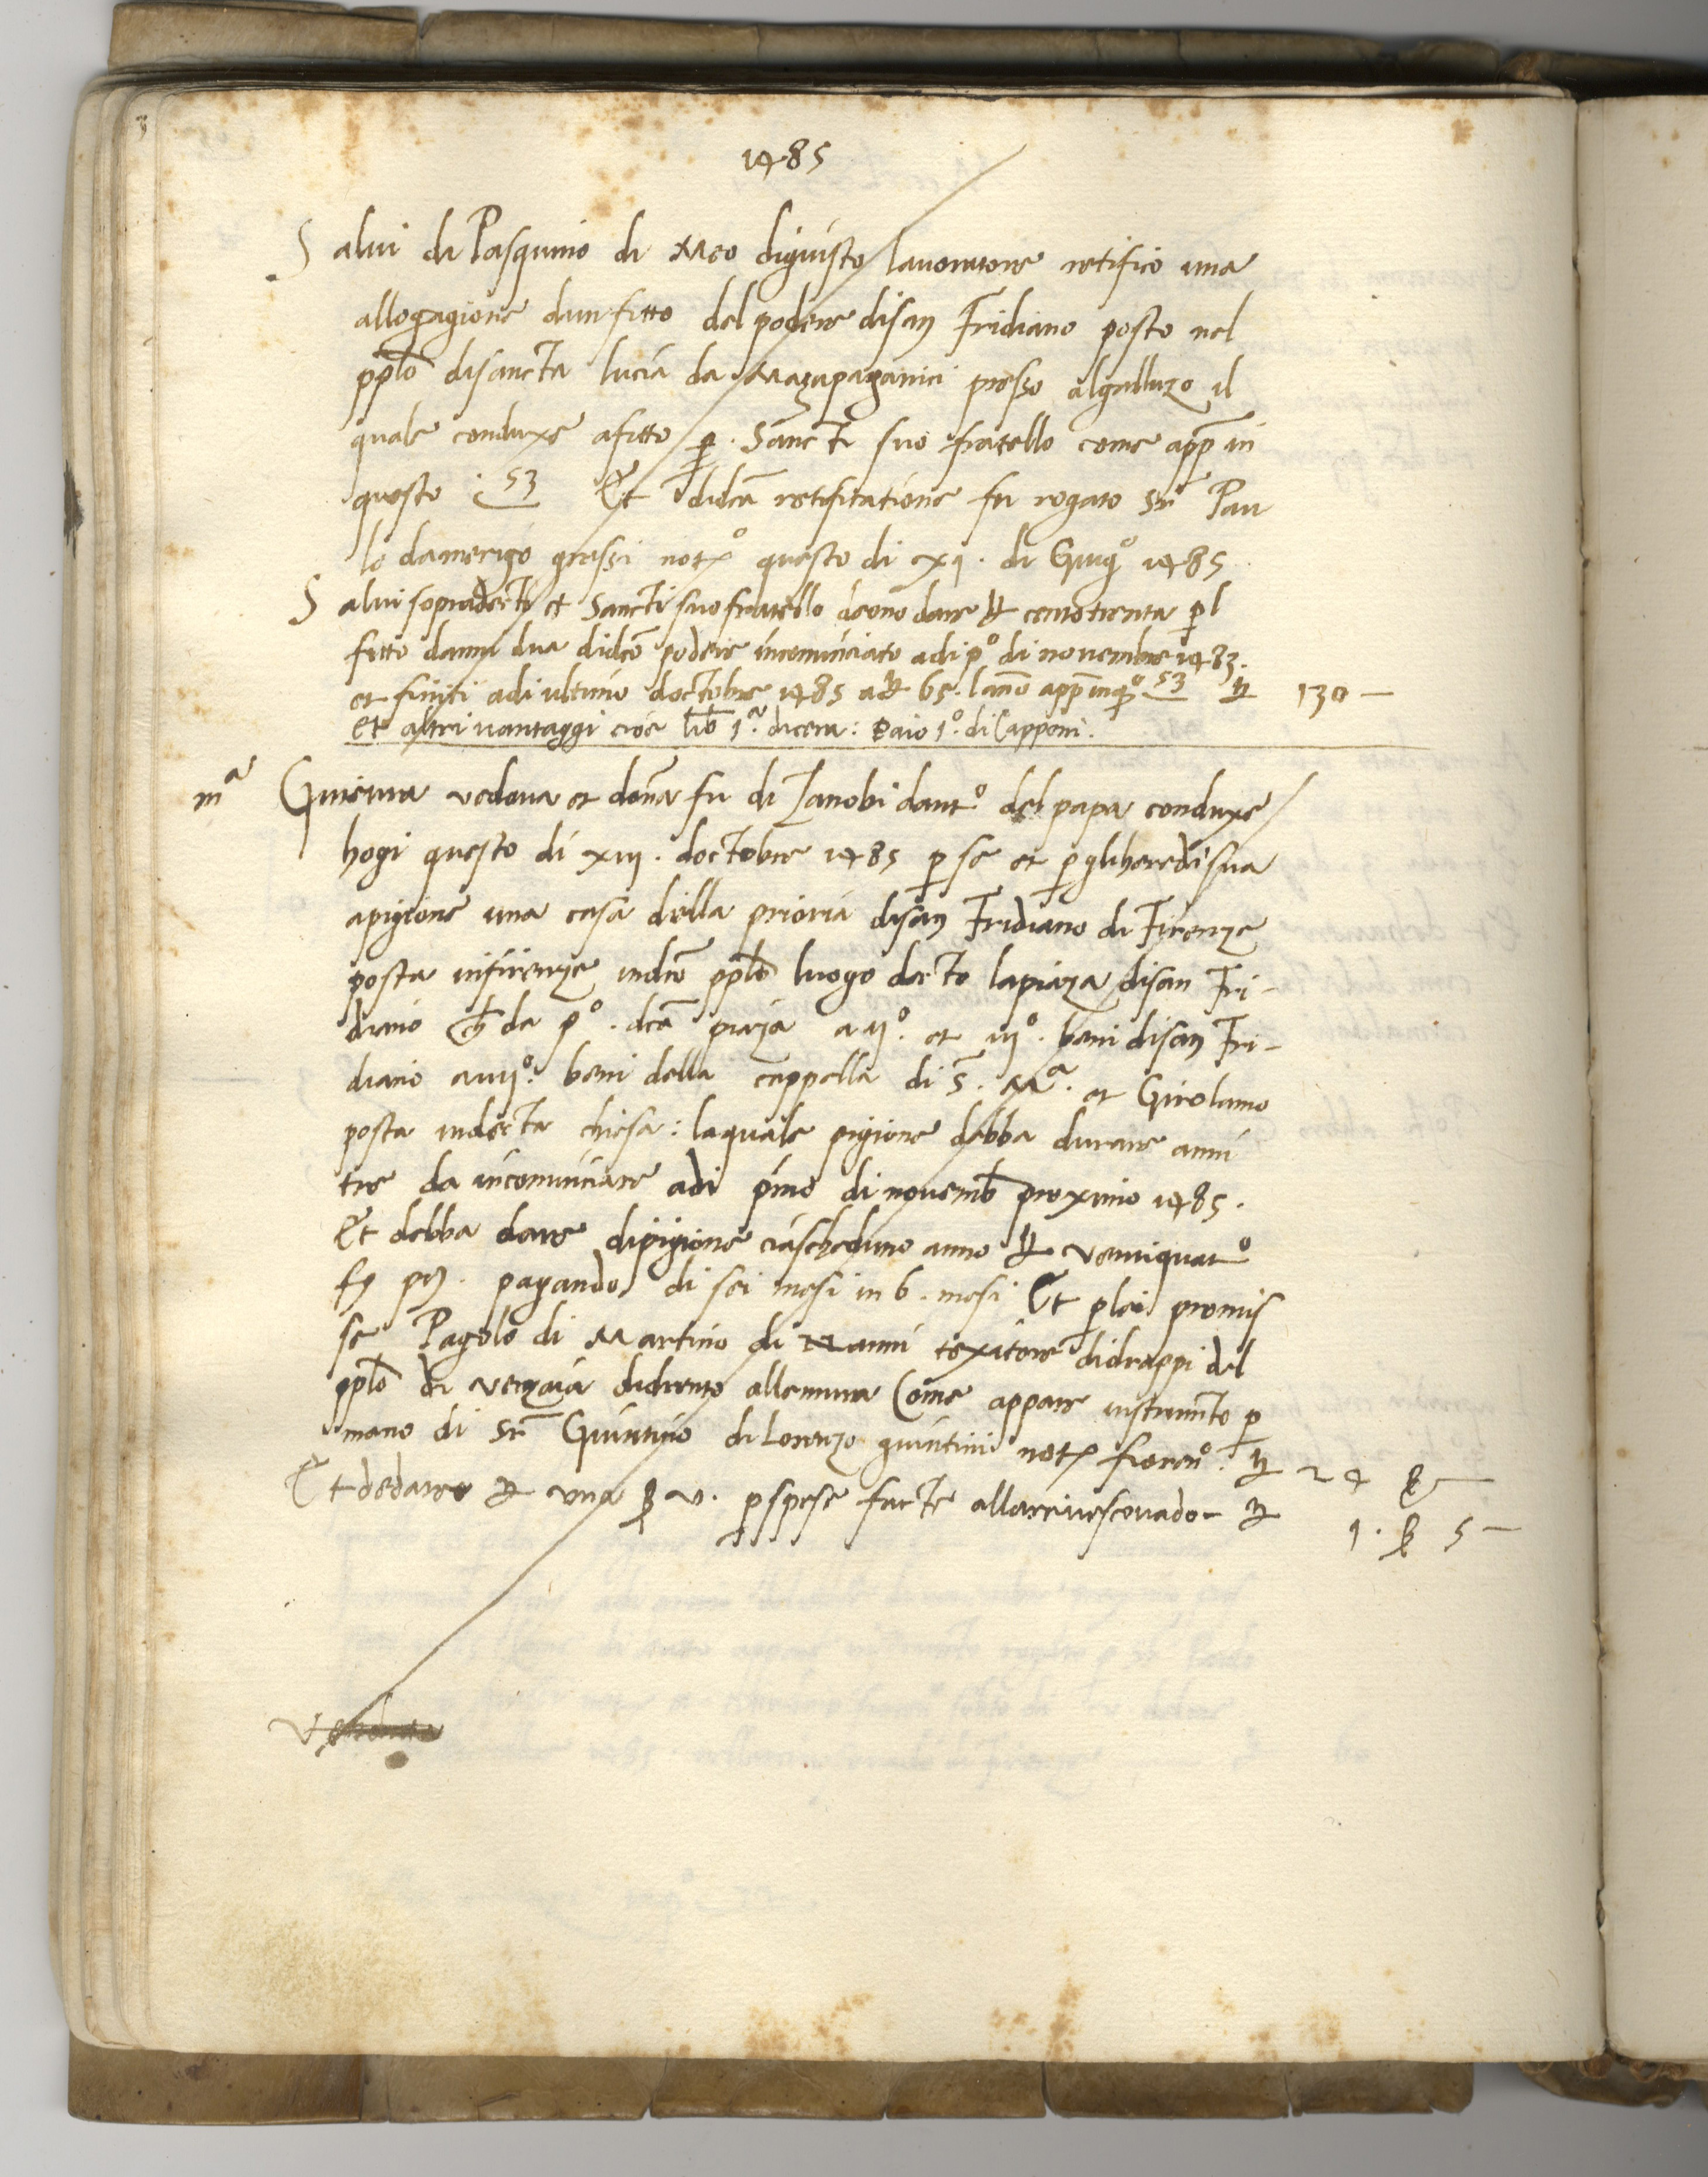 1485
Salui di Pasquino di Meo digiusto lauoratore retifico una
allogagione dun fitto del podere disan Fridiano posto nel
pplo disancta lucia da Mazapaganici presso algalluzo il
quale conduxe afitto p. Sancti suo fratello come app in
questo 53 Et didca retificatione fu rogato Sr Pau
lo damerigo grassi notº questo di xi. di Giugº 1485
Salui sopradecto et Sancti suo fratello deono dare £ centotrenta pl
fitto danni dua didco podere incominciato adi pº di nouembre 1483.
et finiti adi ultimo doctobre 1485 a £ 65. lano app inqº 53 £ 130 —
Et altri uantaggi cioe lib 1ª. dicera: Paio 1º. di Capponi.
mª Gineura vedoua et dona fu di Zanobi dantº del papa conduxe
hogi questo di xiii. doctobre 1485 p se et p gliheredi sua
apigione una casa della prioria disan Fridiano di Firenze
posta infirenze indco pplo luogo decto lapiaza disan Fri-
diano ch da pº. dca piaza a iiº. et iiiº. beni disan Fri-
diano a iiiiº. beni della cappella di S. Mª. et Girolamo
posta indecta chiesa: laquale pigione debba durare anni
tre da incominciare adi pimo di nouemb proximo 1485.
Et debba dare dipigione ciascheduno anno £ ventiquatº
fp pn. pagando di sei mesi in 6. mesi Et plei promis
se Pagolo di Martino di Nanni texitore didrappi del
pplo di verzaia didrento allemura Come appare instrumto p
mano di Sr Guintino di Lorenzo guintini notº fiorenº. £ 24 ß —
Et dedare £ una ß v. pspese facte allarciuescouado - £ 1. ß 5 —